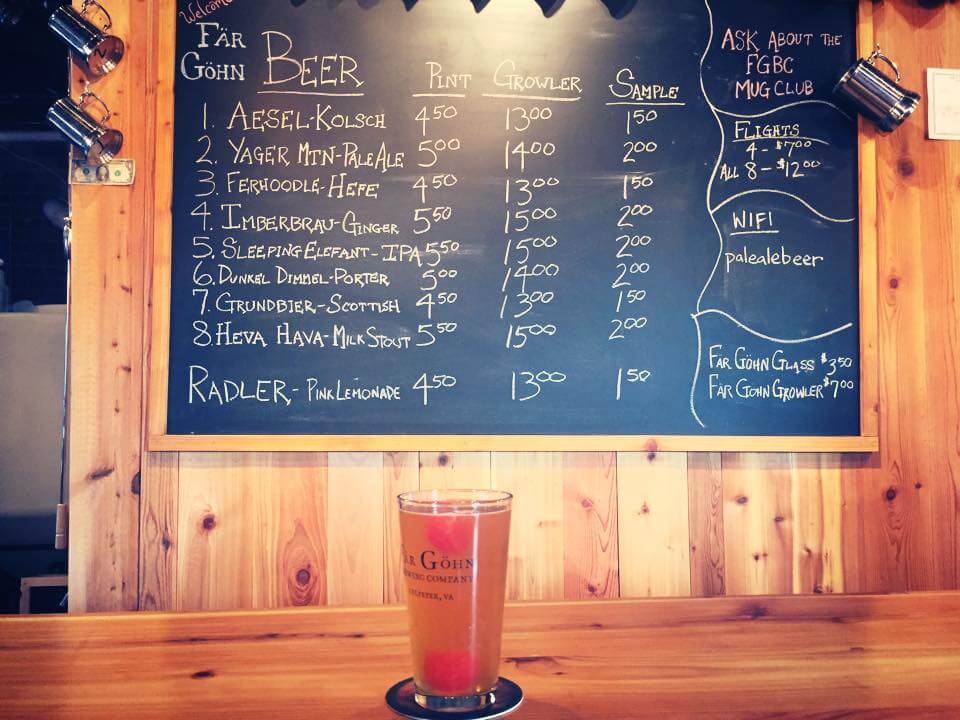 Welcome
FÄR
GÖHN
BEER PINT GROWLER SAMPLE
1. AESEL-KOLSCH 4⁵⁰ 13⁰⁰ 1⁵⁰
2. YAGER MTN-PALE ALE 5⁰⁰ 14⁰⁰ 2⁰⁰
3. FERHOODLE-HEFE 4⁵⁰ 13⁰⁰ 1⁵⁰
4. IMBERBRAU-GINGER 5⁵⁰ 15⁰⁰ 2⁰⁰
5. SLEEPING ELEFANT-IPA 5⁵⁰ 15⁰⁰ 2⁰⁰
6. DUNKEL DIMMEL-PORTER 5⁰⁰ 14⁰⁰ 2⁰⁰
7. GRUNDBIER-SCOTTISH 4⁵⁰ 13⁰⁰ 1⁵⁰
8. HEVA HAVA-MILK STOUT 5⁵⁰ 15⁰⁰ 2⁰⁰
RADLER-PINK LEMONADE 4⁵⁰ 13⁰⁰ 1⁵⁰
ASK ABOUT THE
FGBC
MUG CLUB
FLIGHTS
4-$7⁰⁰
ALL 8-$12⁰⁰
WIFI
palealebeer
FÄR GÖHN GLASS $3⁵⁰
FÄR GÖHN GROWLER $7⁰⁰
FÄR GÖHN
BREWING COMPANY
CULPEPER, VA